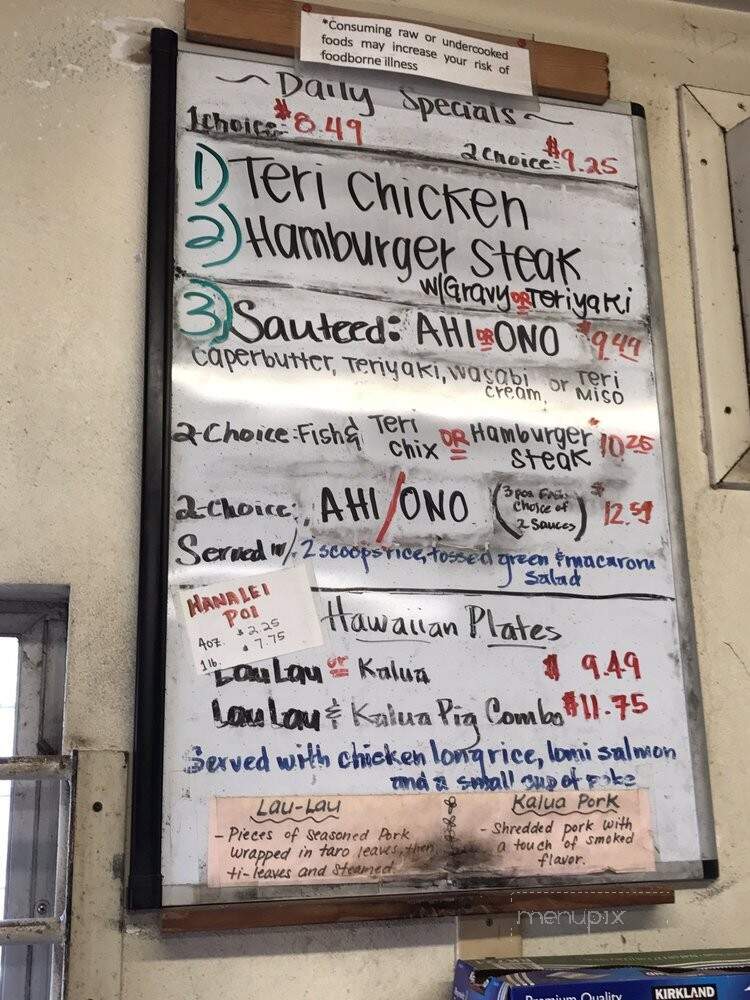 *Consuming raw or undercooked
foods may increase your risk of
foodborne illness
~ Daily Specials ~
1choice: $8.49
2 choice: $9.25
1) Teri chicken
2) Hamburger steak
w/Gravy OR Teriyaki
3) Sauteed: AHI OR ONO $9.49
caperbutter, Teriyaki, wasabi cream, or Teri Miso
2-Choice: Fish & Teri chix OR Hamburger steak $10.25
2-Choice: AHI/ONO (3 pcs Fish choice of 2 sauces) $12.59
Served w/ 2 scoops rice, tossed green & macaroni
salad
HANALEI
POI
4oz. $2.25
1lb. $7.75
Hawaiian Plates
Lau Lau or Kalua $9.49
Lau Lau & Kalua Pig Combo $11.75
Served with chicken longrice, lomi salmon
and a small cup of poke
Lau-Lau
- Pieces of seasoned Pork
wrapped in taro leaves, then
ti-leaves and steamed.
Kalua Pork
- Shredded pork with
a touch of smoked
flavor.
menupix
Premium Quality
KIRKLAND